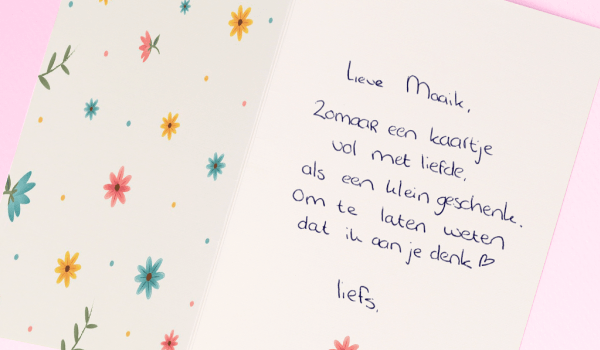 Lieve Maaik,
Zomaar een kaartje
vol met liefde,
als een klein geschenk.
Om te laten weten
dat ik aan je denk ♡
liefs,